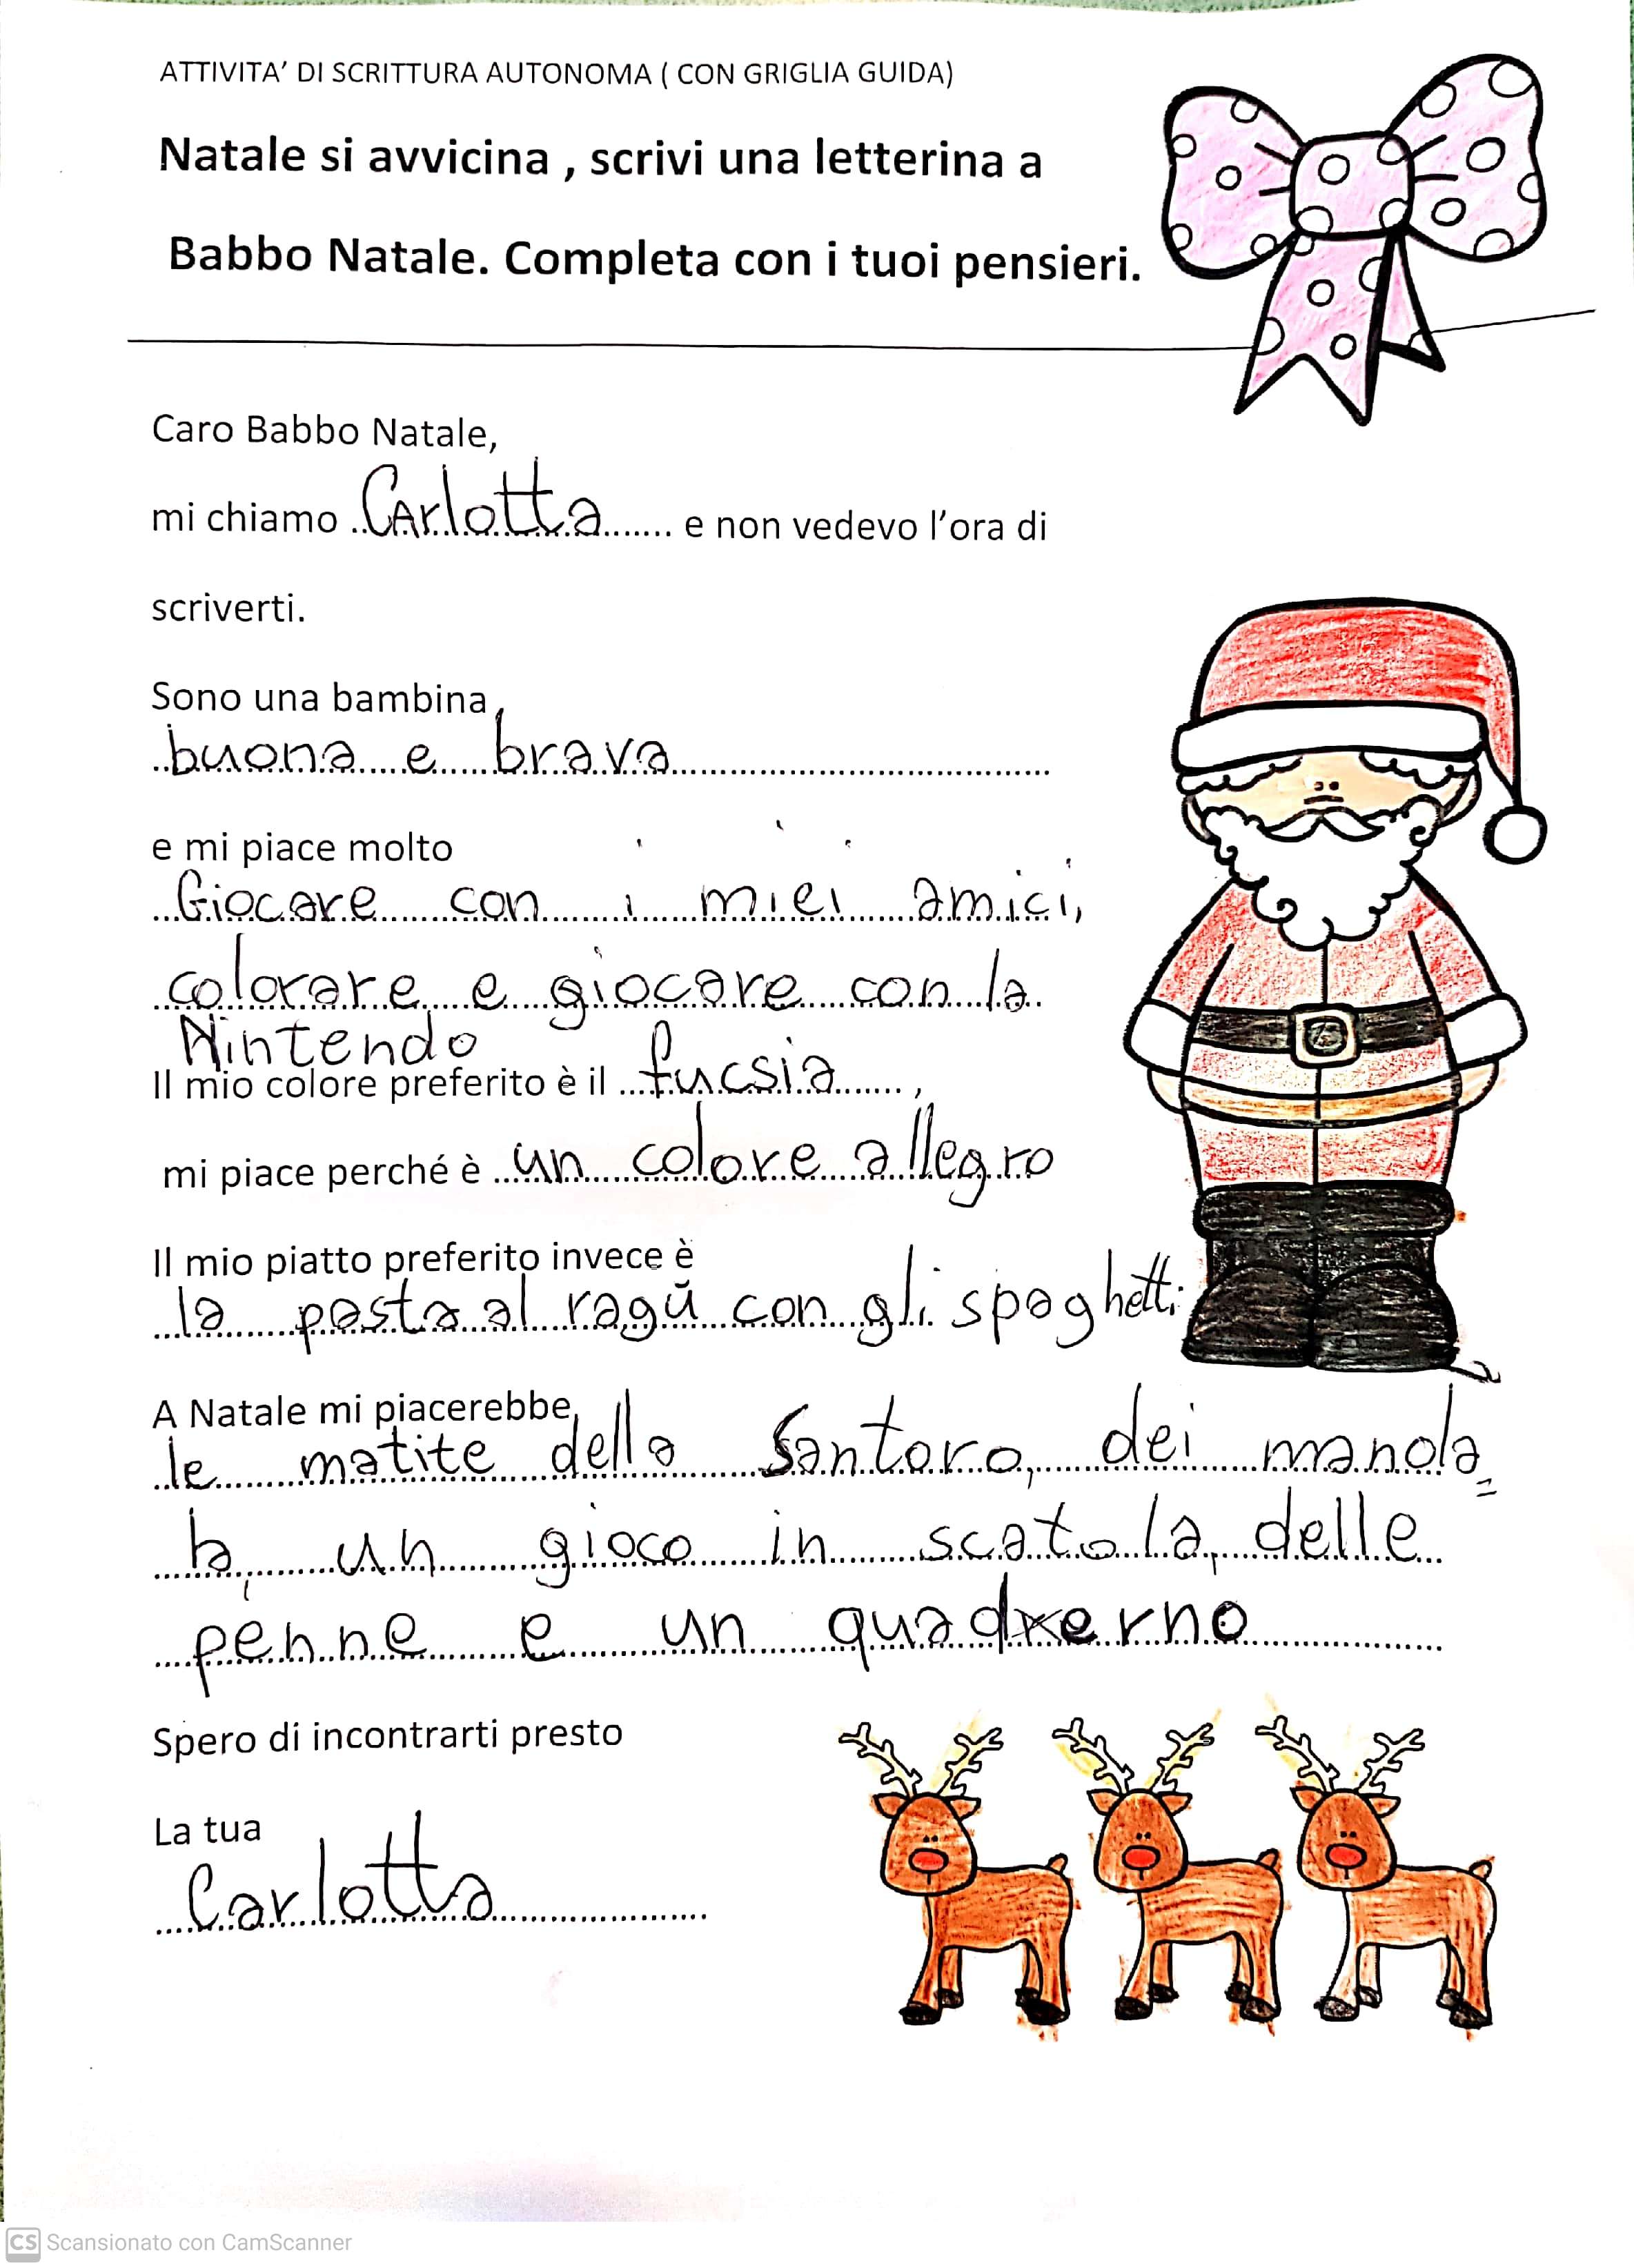 ATTIVITA' DI SCRITTURA AUTONOMA ( CON GRIGLIA GUIDA)
Natale si avvicina , scrivi una letterina a
Babbo Natale. Completa con i tuoi pensieri.
Caro Babbo Natale,
mi chiamo ..CArlotta....... e non vedevo l'ora di
scriverti.
Sono una bambina
buona e brava
e mi piace molto
Giocare con i miei amici,
colorare e giocare con la
Nintendo
Il mio colore preferito è il ...fucsia....... ,
mi piace perché è un colore allegro
Il mio piatto preferito invece è
la pasta al ragŭ con gli spaghetti
A Natale mi piacerebbe
le matite della Santoro, dei mandala=
la, un gioco in scatola, delle
penne e un quaderno
Spero di incontrarti presto
La tua
Carlotta
CS Scansionato con CamScanner